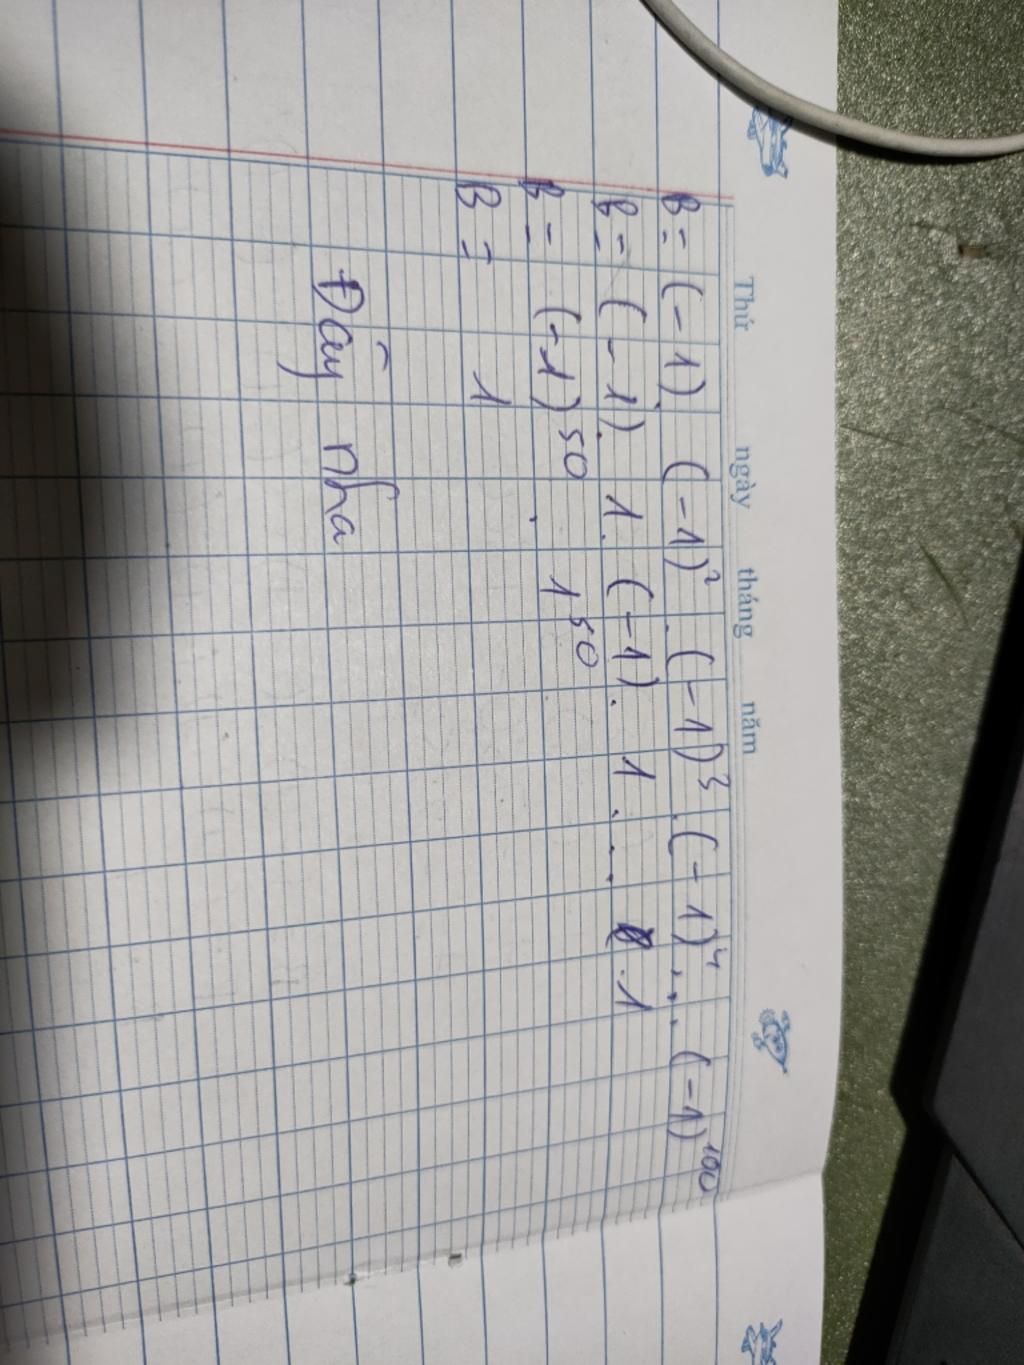 Thứ ngày tháng năm
B = (-1) . (-1)² . (-1)³ . (-1)⁴ ... (-1)¹⁰⁰
B = (-1) . 1 . (-1) . 1 . ... . 1
B = (-1)⁵⁰ . 1⁵⁰
B = 1
Đây nha